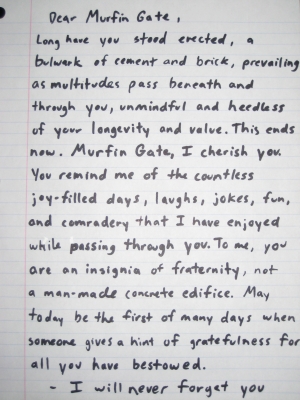 Dear Murfin Gate,
Long have you stood erected, a
bulwark of cement and brick, prevailing
as multitudes pass beneath and
through you, unmindful and heedless
of your longevity and value. This ends
now. Murfin Gate, I cherish you.
You remind me of the countless
joy-filled days, laughs, jokes, fun,
and comradery that I have enjoyed
while passing through you. To me, you
are an insignia of fraternity, not
a man-made concrete edifice. May
today be the first of many days when
someone gives a hint of gratefulness for
all you have bestowed.
- I will never forget you